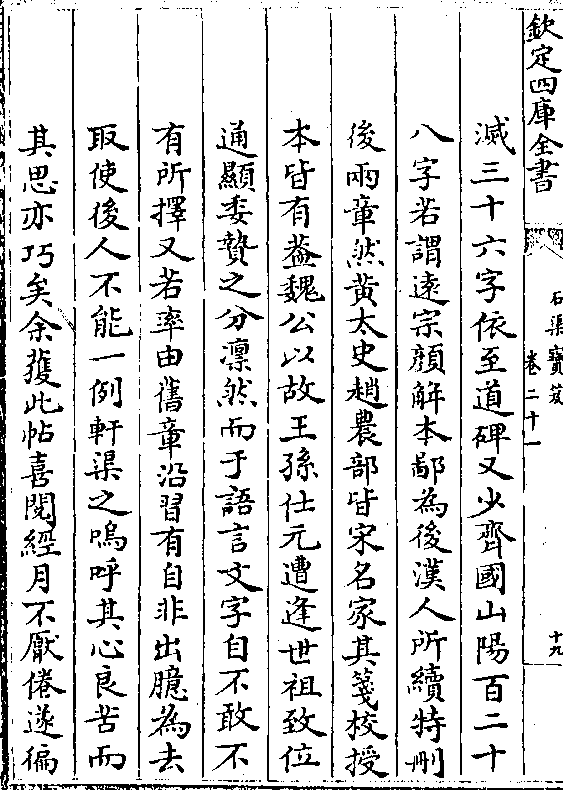 欽定四庫全書
石渠寶笈
卷二十一
十九
滅三十六字依至道碑又少齊國山陽百二十
八字若謂遠宗顔解本鄙為後漢人所續特刪
後兩章然黄太史趙農部皆宋名家其箋校授
本皆有葢魏公以故王孫仕元遭逢世祖致位
通顯委贄之分凛然而于語言文字自不敢不
有所擇又若率由舊章沿習有自非出臆為去
取使後人不能一例軒渠之嗚呼其心良苦而
其思亦巧矣余獲此帖喜閲經月不厭倦遂徧